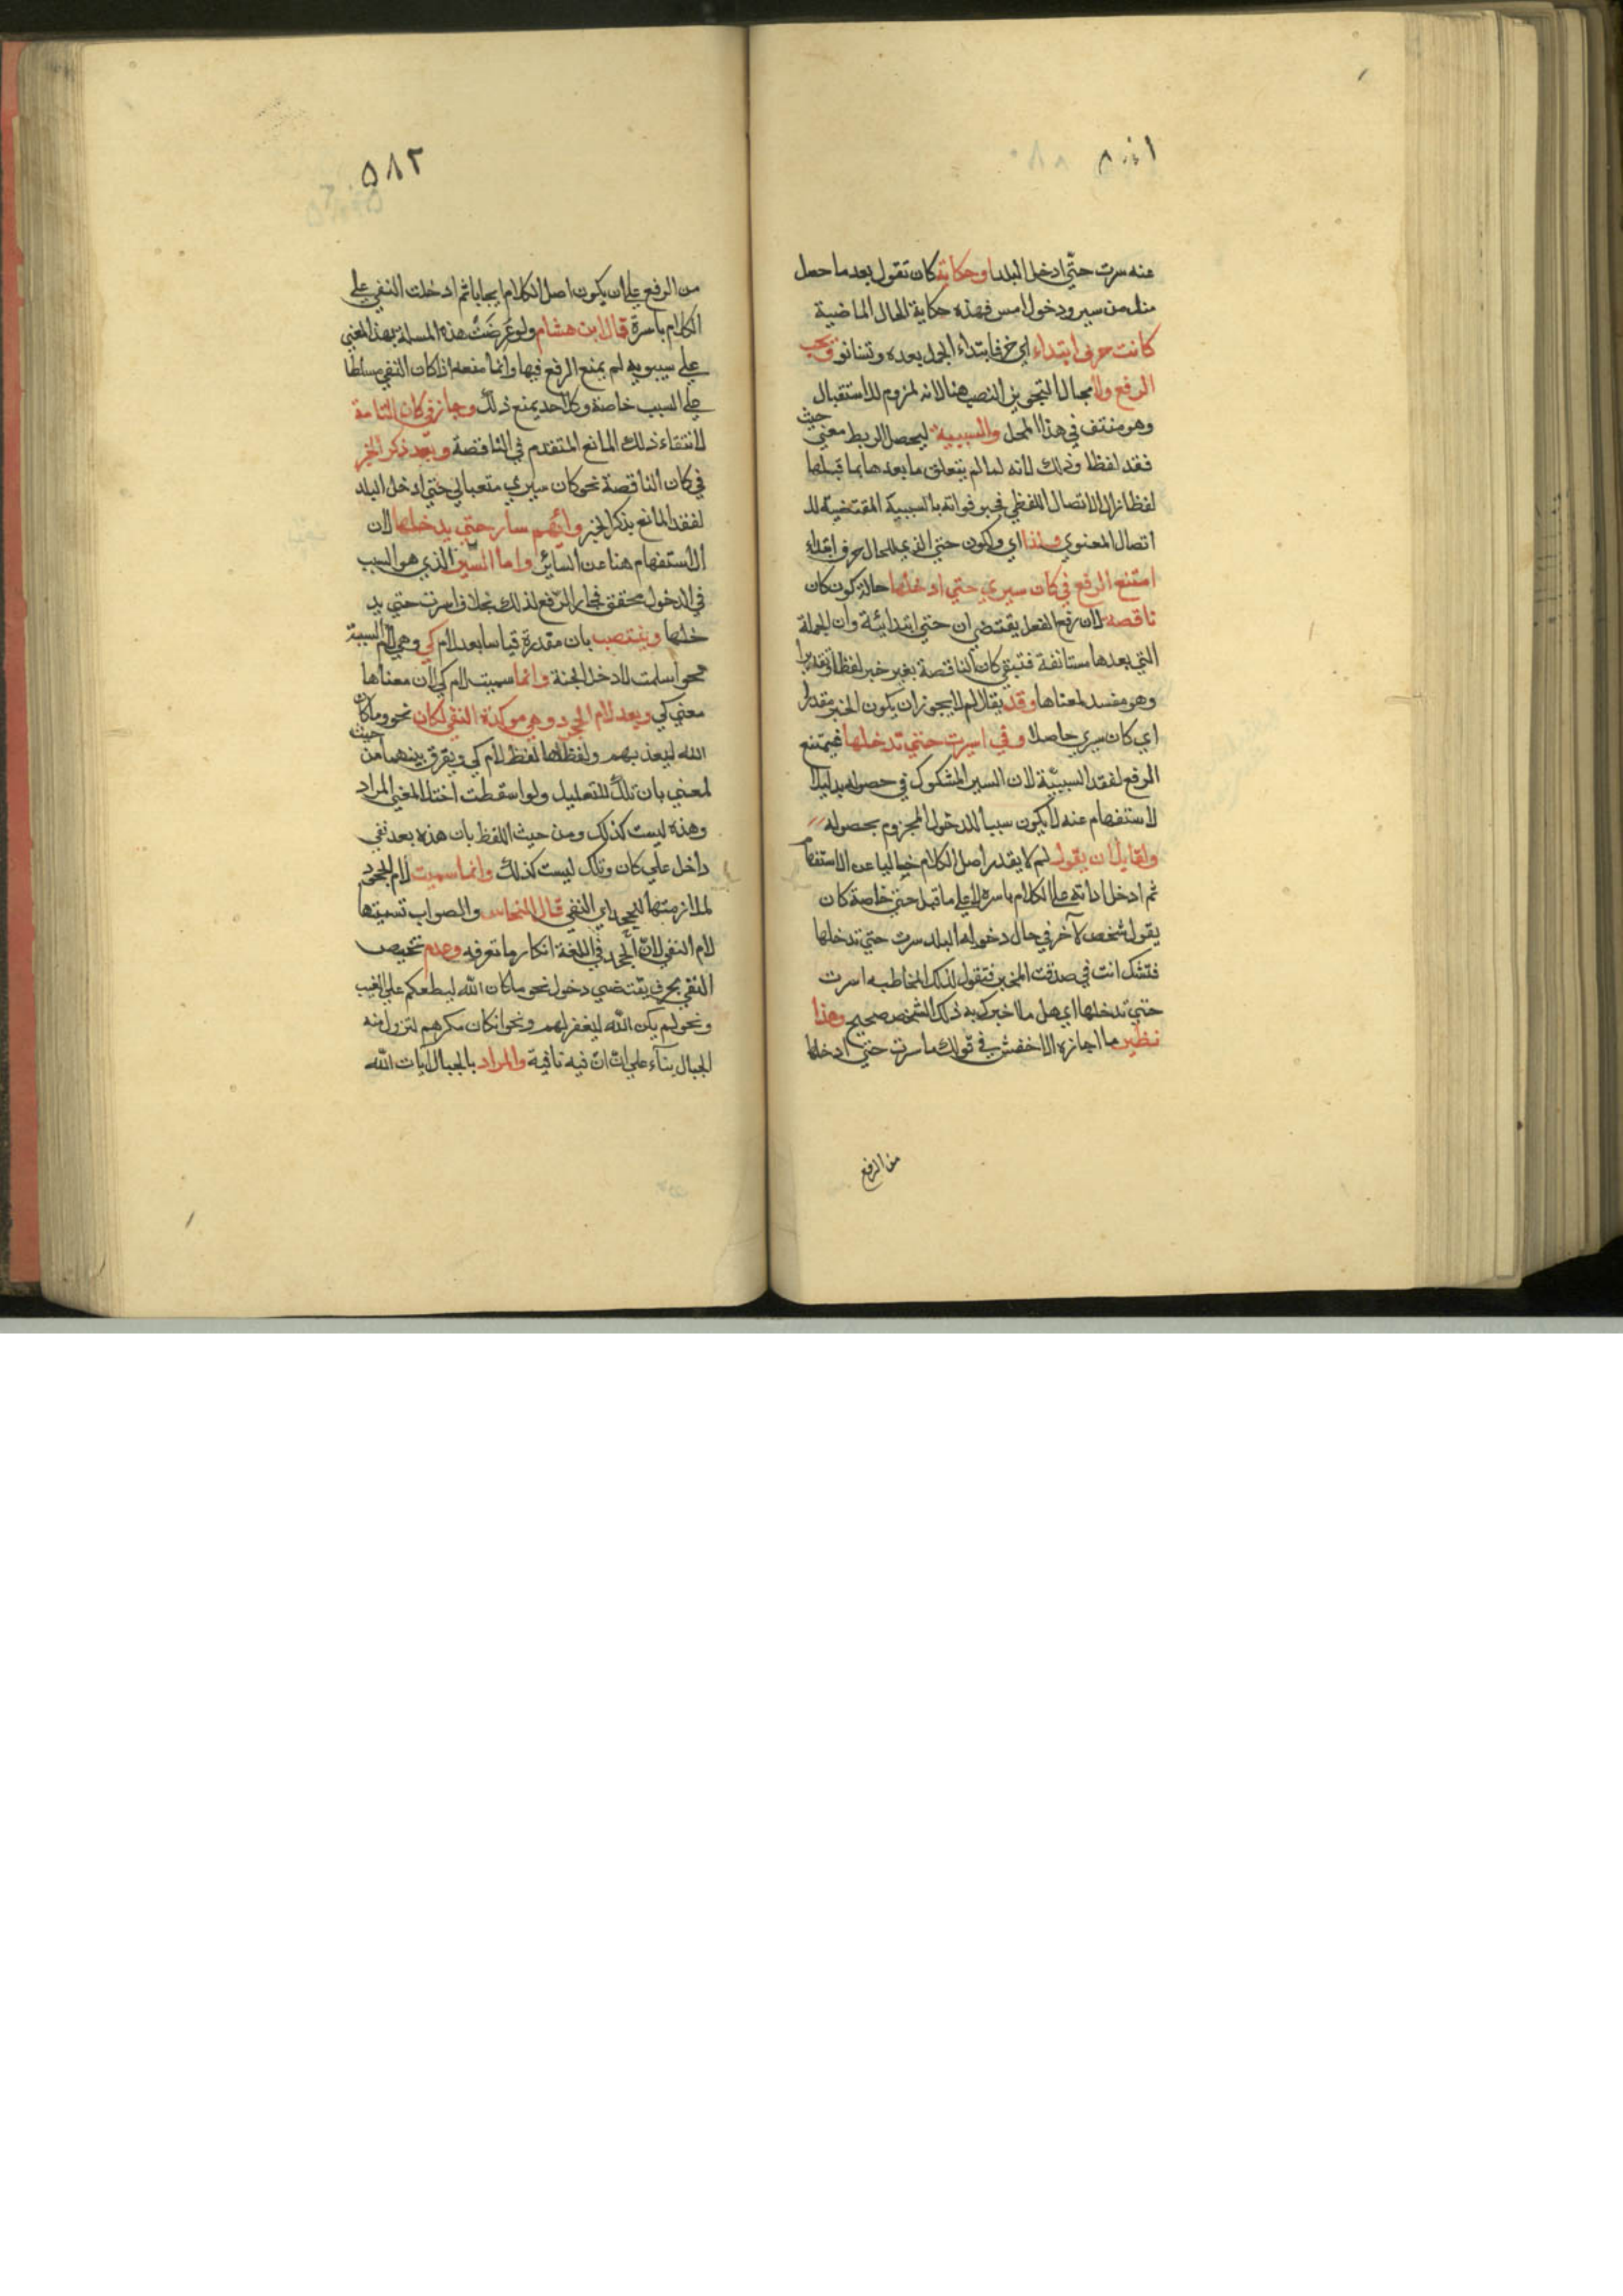 ٥٨١
عنه سرت حتّي ادخل البلد او حكاية كان تقول بعد ما حصل
منك من سير ودخول امس فهذه حكاية الحال الماضية
كانت حرف ابتداء اي حرفا ابتداء الجمل بعده وتستانف ويجب
الرفع ولا مجال لتجويز النصب هنا لانه لمزوم للاستقبال
وهو منتف في هذا المحل والسببية ليحصل الربط معني حيث
فقد لفظا وذلك لانه لما لم يتعلق ما بعدها بما قبلها
لفظا زال الاتصال اللفظي فجبر فواته بالسببية المقتضية للا
اتصال المعنوي ولذا اي ولكون حتي الذي للحال حرف ابتداء
امتنع الرفع في كان سيري حتي ادخلها حالة كون كان
ناقصة لان رفع الفعل يقتضي ان حتي ابتدائية وان الجملة
التي بعدها مستانفة فتبقي كان الناقصة بغير خبر لفظا وتقديرا
وهو مفسد لمعناها وقد يقال لم لا يجوز ان يكون الخبر مقدرا
اي كان سيري حاصلا وفي اسرت حتي تدخلها فيمتنع
الرفع لفقد السببيّة لان السير المشكوك في حصوله بدليل ا
لاستفهام عنه لا يكون سببا للدخول المجزوم بحصوله
ولقايل ان يقول لم لا يقدر اصل الكلام خاليا عن الاستفهام
ثم ادخل اداته علي الكلام باسره لا علي ما قبل حتي خاصة كان
يقول شخص لآخر في حال دخوله البلد سرت حتي تدخلها
فتشك انت في صدق المخبر فتقول لذلك المخاطب اسرت
حتي تدخلها اي هل ما اخبرك به ذلك الشخص صحيح وهذا
نظير ما اجازه الاخفش في قولك ما سرت حتي ادخلها
من الرفع
٥٨٢
من الرفع علي ان يكون اصل الكلام ايجابا ثم ادخلت النفي علي
الكلام باسرة قال ابن هشام ولو عرضت هذه المسلة بهذا المعني
علي سيبويه لم يمنع الرفع فيها وانما منعه اذا كان النفي مسلطا
علي السبب خاصة وكل احد يمنع ذلك وجاز في كان التامة
لانتقاء ذلك المانع المتقدم في الناقصة وبعد ذكر الخبر
في كان الناقصة نحو كان سيري متعبا لي حتي ادخل البلد
لفقد المانع بذكر الخبر وايّهم سار حتي يدخلها لان
الاستفهام هنا عن السائر واما السّير الذي هو السبب
في الدخول محقق فجاز الرّفع لذلك بخلاف اسرت حتي يد
خلها وينتصب بان مقدرة قياسا بعد لام كي وهي لام السببية
نحو اسلمت لادخل الجنة وانما سميت لام كي لان معناها
معني كي وبعد لام الجحود وهي موكدة النفي لكان نحو وما كان
الله ليعذبهم ولفظها لفظ لام كي ويفرق بينهما من حيث
لمعني بان تلك للتعليل ولو اسقطت اختل المعني المراد
وهذه ليست كذلك ومن حيث اللفظ بان هذه بعد نفي
داخل علي كان وتلك ليست كذلك وانما سميت لام الجحود
لملازمتها للجحد اي النفي قال النحاس والصواب تسميتها
لام النفي لانّ الجحد في اللغة انكار ما تعرفه وعدم تخصيص
النفي بحرف يقتضي دخول نحو ما كان الله ليطلعكم علي الغيب
ونحو لم يكن الله ليغفر لهم ونحو ان كان مكرهم لتزول منه
الجبال بنآء علي انّ ان فيه نافية والمراد بالجبال آيات الله